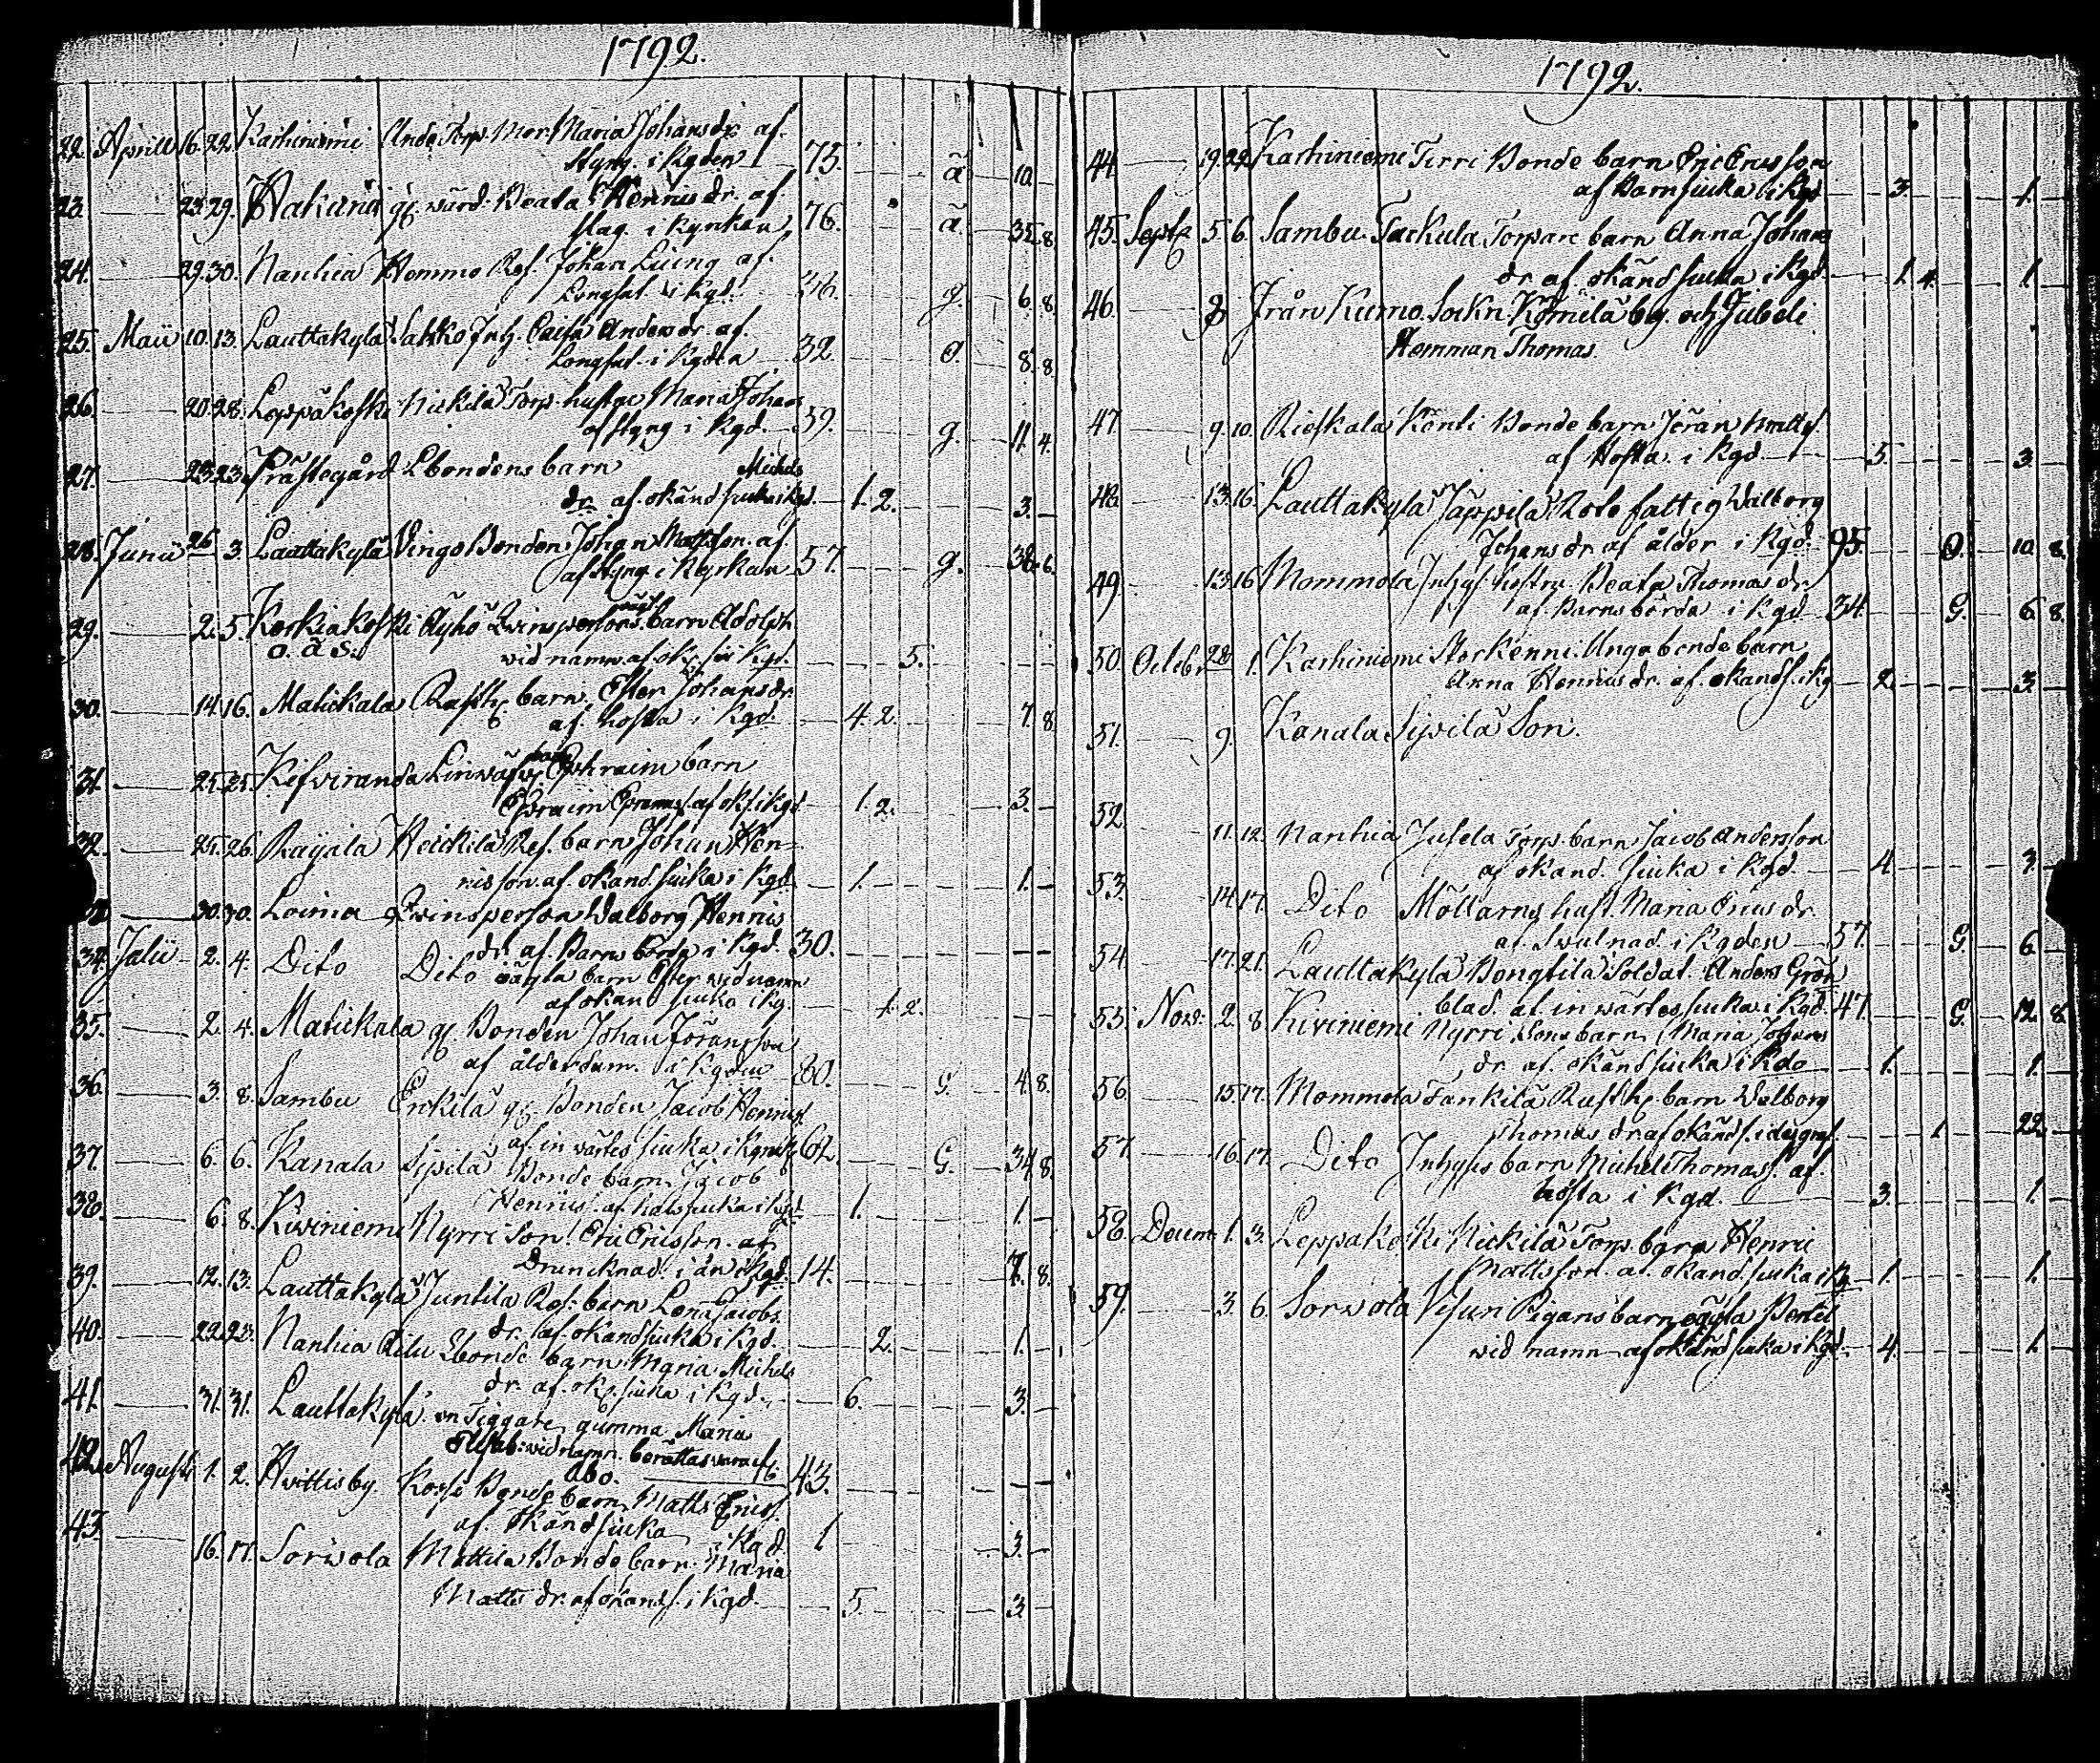 1792.
22. Aprill 16. 22. Karhiniemi Ände Torp. Mor. Maria Johansdr. af.
styng. i Kgden 75. ä 10. —
23. — 23. 29. Hakuni gl. wärd. Beata Hennusdr. af
slag. i Kyrkan 76. ä 35. 8.
24. — 29. 30. Nanhia Hemmo Rof. Johan Liung af.
Longsot. i Kgd. 46. g. 6. 8.
25. Maii 10. 13. Lauttakylä Sahko Inh. Caisa Andersdr. af.
Longsot. i Kgden 32 O. 8. 8.
26. — 20. 28. Leppäkoski Nickilä Torp. hustru Maria Johans
af styng i Kgd. 59. g. 11. 4.
27. — 23. 23. Prästegård Lbondens barn Michels
dr. af. okänd siuka i Kgd. — 1. 2. 3. —
28. Junii 26 3. Lauttakylä Vingo Bonden Johan Mattson. af
af styng i Kyrkan 57. g. 38. 6.
29. — 2. 5. Korkiakoski Äyhö Qwinspersons oägt. barn Adolph
o. ä. S. wid namn af ok. s. i Kgd. — 5.
30. — 14. 16. Matickala Rusth. barn. Ester Johansdr.
af. hosta i Kgd. — 4. 2. 7. 8.
31. — 25. 25. Kifviranda Ephraim barn
Ephraim af ok. s. i Kgd. — 1. 2. 3. —
32. — 25. 26. Raijala Heickilä Rof. barn Johan Hen-
risson. af. okand. siuka i Kgd. — 1. 1. —
30. 30. Loima Qwinsperson Walborg Hennis
dr. af. Barns börda i Kgd. 30.
34. Julii 2. 4. Dito Dito oägta barn Ester wid namn
af okand siuka i Kg. — 1. 2.
35. — 2. 4. Matickala gl. Bonden Johan Jöransson
af ålderdom. i Kgden 80. G. 4. 8.
36. — 3. 8. Sambu Erkilä gl. Bonden Jacob Henriss.
af. inwärtes siuka i Kyrck. 62. G. 34. 8.
37. — 6. 6. Kanala Sipilä Bonde barn Jacob
Henriss. af halssiuka i Kgd. — 1. 1. —
38. — 6. 8. Kiviniemi Nyrri Son. Eric Ericsson. af
Druncknad. i ån i Kgd. 14. 7. 8.
39. — 12. 13. Lauttakylä Juntila Rof. barn Lena Jacobs
dr. af. okand siuka i Kgd. — 2. 1. —
40. — 22. 23. Nanhia Lbonde barn Maria Michels
dr. af. ok. siuka i Kgd. — 6. 3. —
41. — 31. 31. Lauttakylä. en Tiggare gumma Maria
Elisab: wid namn. berättas wara af
Åbo. 43.
42. Augusti 1. 2. Hvittisby Kossi Bonde barn Matts Ericss.
af. okänd siuka i Kgd. 1 3. —
43. — 16. 17. Sorwola Mattila Bonde barn. Maria
Matts dr. af okand s. i Kgd. — 5. 3.
1792.
44. — 19. 22. Karhiniemi Tirri Bonde barn Eric Ericsson
af Barnsiuka i Kgd. — 3. 1. —
45. Septr. 5. 6. Sambu Tackula Torpare barn Anna Johans
dr. af. okänd siuka i Kgd. — 1. 4. 1. —
46. — 8 Från Kumo Sockn. Kömilä by. och Jubeli
Hemman Thomas.
47. — 9. 10. Rieskala Könti Bonde barn Jöran Mattss.
af Hosta. i Kgd. — 5. 3. —
48. — 13. 16. Lauttakylä Jäppilä Rote fattig Walborg
Johansdr af ålder i Kgd. 95. O. 10. 8.
49. — 13. 16 Mommola Inhys. hustru. Beata Thomasdr
af. Barns börda i Kgd. 34. G. 6. 8.
50. Octobr 28 1. Karhiniemi Storkenni. Unga bonde barn
Anna Hennusdr. af. okand s. i Kg — 2. 3. —
51. — 9. Kanala Sipilä Son.
52. — 11. 12. Nanhia Jusela Torp. barn Jacob Andersson
af okand. siuka i Kgd. — 4. 3. —
53. — 14. 17. Dito Möllarns hust. Maria Ericsdr.
af. Swulnad. i Kgden 57. G. 6. —
54. — 17. 21. Lauttakylä Bongtila Soldat Anders Grön
blad. af inwärtes siuka i Kgd. 47. G. 12. 8.
55. Nov. 2. 8. Kiviniemi Nyrri Sons barn Maria Johans
dr af. okänd siuka i Kgd — 1. 1. —
56. — 15. 17. Mommola Tankila Rusth. barn Walborg
Thomas dr. af okänd s. i deg graf. — 1. 22. —
57. — 16. 17. Dito Inhyses barn Michel Thomass. af.
Hosta i Kgd. — 3. 1. —
58. Decem. 1. 3. Leppakoski Nickilä Torp. barn Henric
Mattsson. af okand. siuka i Kg. — 1. 1. —
59. — 3. 6. Sorwola Visuri Pigans barn oägta Bertil
wid namn af okänd siuka i Kgd. — 4. 1. —